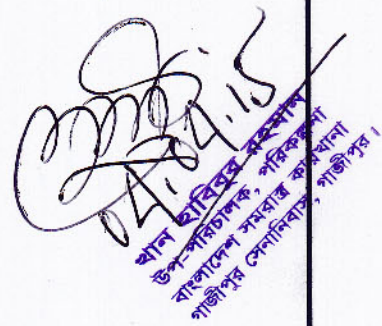 04.04.15
খান হাবিবুর রহমান
উপ-পরিচালক, পরিকল্পনা
বাংলাদেশ সমরাস্ত্র কারখানা
গাজীপুর সেনানিবাস, গাজীপুর।